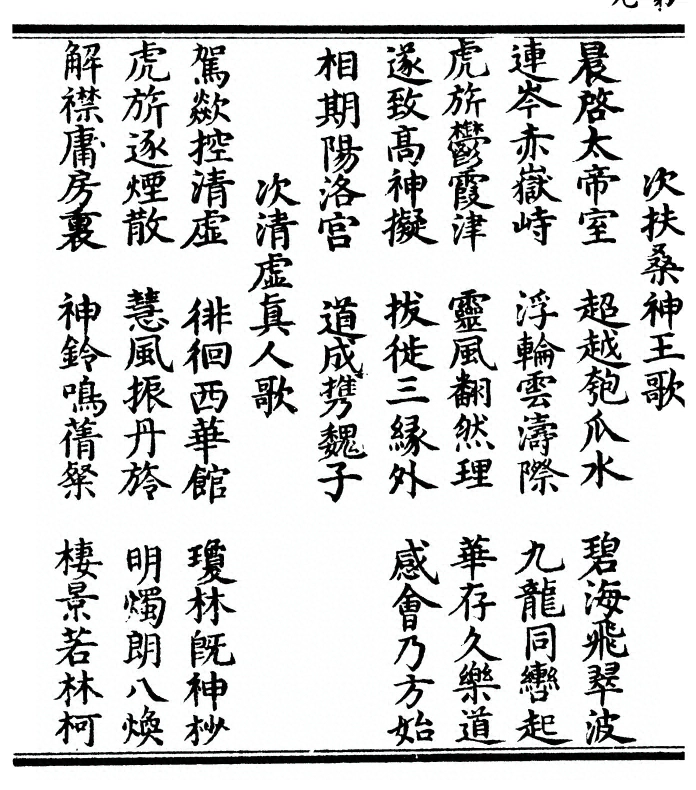 次扶桑神王歌
晨啓太帝室 超越匏瓜水 碧海飛翠波
連岑赤嶽峙 浮輪雲濤際 九龍同轡起
虎旂鬱霞津 靈風翻然理 華存久樂道
遂致高神擬 拔徙三緣外 感會乃方始
相期陽洛宮 道成攜魏子
次清虛真人歌
駕欻控清虛 徘徊西華館 瓊林既神杪
虎旂逐煙散 慧風振丹旍 明燭朗八煥
解襟庸房裏 神鈴鳴蒨粲 棲景若林柯